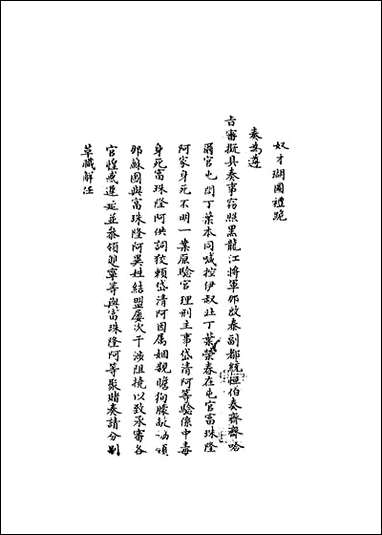 奴才瑚圖禮跪
奏為遵
旨審擬具奏事竊照黑龍江將軍那啟泰副都統恒伯奏齊齊哈
爾官屯閒丁葉本同喊控伊叔壯丁葉榮春在屯官富珠隆
阿家身死不明一案原驗官理刑主事岱清阿等驗係中毒
身死富珠隆阿供詞狡賴岱清阿因屬姻親瞻狥朦
那蘇圖與富珠隆阿異姓結盟屢次干涉阻撓以致承審各
官惶惑遲延並叅領寧等與富珠隆阿等聚賭奏請分別
革職解任